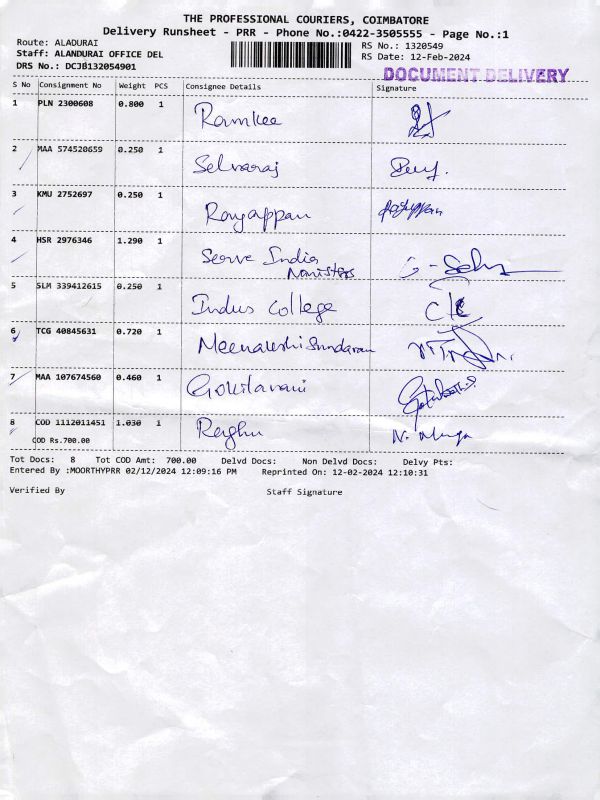 THE PROFESSIONAL COURIERS, COIMBATORE
Delivery Runsheet - PRR - Phone No.:0422-3505555 - Page No.:1
Route: ALADURAI
Staff: ALANDURAI OFFICE DEL
DRS No.: DCJB132054901
RS No.: 1320549
RS Date: 12-Feb-2024
DOCUMENT DELIVERY
S No Consignment No Weight PCS Consignee Details Signature
1 PLN 2300608 0.800 1 Ramkee
2 MAA 574520659 0.250 1 Selvaraj
3 KMU 2752697 0.250 1 Rayappan
4 HSR 2976346 1.290 1 Serve India
5 SLM 339412615 0.250 1 Indus College
6 TCG 40845631 0.720 1 Meenakshi Sundaram
7 MAA 107674560 0.460 1 Gokilavani
8 COD 1112011451 1.030 1 Raghu
COD Rs.700.00
Tot Docs: 8 Tot COD Amt: 700.00 Delvd Docs: Non Delvd Docs: Delvy Pts:
Entered By :MOORTHYPRR 02/12/2024 12:09:16 PM Reprinted On: 12-02-2024 12:10:31
Verified By Staff Signature